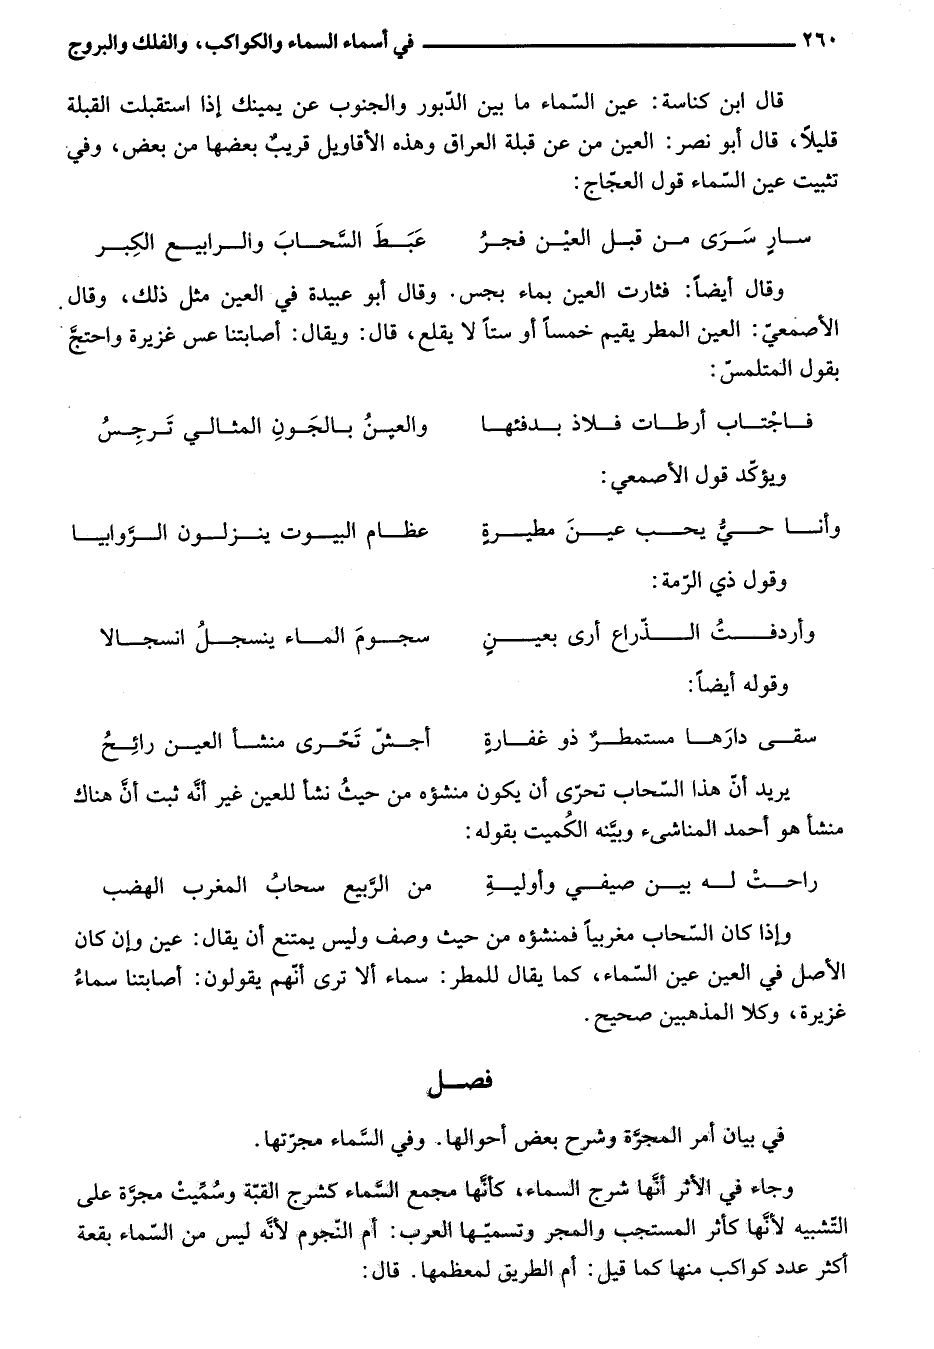 ٢٦٠ ــــــــــــــــ في أسماء السماء والكواكب، والفلك والبروج
قال ابن كناسة: عين السّماء ما بين الدّبور والجنوب عن يمينك إذا استقبلت القبلة
قليلاً، قال أبو نصر: العين من عن قبلة العراق وهذه الأقاويل قريبٌ بعضها من بعض، وفي
تثبيت عين السّماء قول العجّاج:
سارٍ سَرَى من قبل العيْن فجرُ عَبَطَ السَّحابَ والرابيع الكِبر
وقال أيضاً: فثارت العين بماء بجس. وقال أبو عبيدة في العين مثل ذلك، وقال
الأصمعيّ: العين المطر يقيم خمساً أو ستاً لا يقلع، قال: ويقال: أصابتنا عس غزيرة واحتجَّ
بقول المتلمسّ:
فاجْتاب أرطات فلاذ بدفئها والعينُ بالجَونِ المثالي تَرجِسُ
ويؤكّد قول الأصمعي:
وأنا حيُّ يحب عينَ مطيرةٍ عظام البيوت ينزلون الرَّوابيا
وقول ذي الرّمة:
وأردفتُ الذّراع أرى بعينٍ سجومَ الماء ينسجلُ انسجالا
وقوله أيضاً:
سقى دارَها مستمطرٌ ذو غفارةٍ أجشّ تَحّرى منشأ العين رائِحُ
يريد أنّ هذا السّحاب تحرّى أن يكون منشؤه من حيثُ نشأ للعين غير أنَّه ثبت أنَّ هناك
منشأ هو أحمد المناشىء وبيَّنه الكُميت بقوله:
راحتْ له بين صيفي وأوليةِ من الرَّبيع سحابُ المغرب الهضب
وإذا كان السّحاب مغربياً فمنشؤه من حيث وصف وليس يمتنع أن يقال: عين وإن كان
الأصل في العين عين السّماء، كما يقال للمطر: سماء ألا ترى أنّهم يقولون: أصابتنا سماءُ
غزيرة، وكلا المذهبين صحيح.
فصـل
في بيان أمر المجرَّة وشرح بعض أحوالها. وفي السَّماء مجرّتها.
وجاء في الأثر أنَّها شرج السماء، كأنَّها مجمع السَّماء كشرج القبّة وسُمِّيتْ مجرَّة على
التّشبيه لأنَّها كأثر المستجب والمجر وتسميّها العرب: أم النّجوم لأنَّه ليس من السّماء بقعة
أكثر عدد كواكب منها كما قيل: أم الطريق لمعظمها. قال: